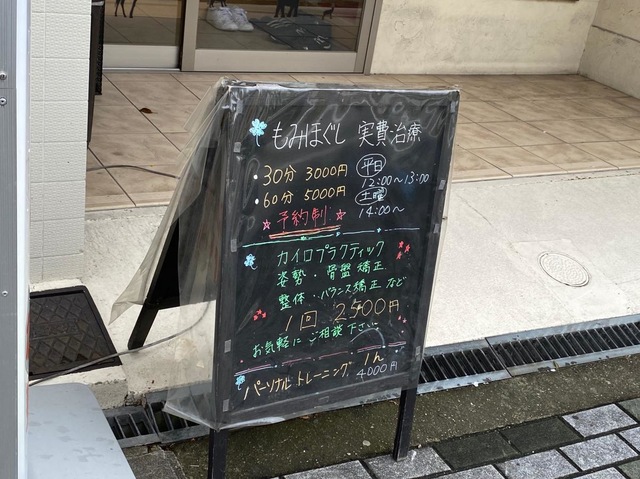 もみほぐし 実費治療
・30分 3000円 平日
12:00～13:00
・60分 5000円 土曜
☆予約制☆ 14:00～
カイロプラクティック
姿勢・骨盤矯正
整体・バランス矯正など
1回 2500円
お気軽にご相談下さい
パーソナルトレーニング 1h
4000円